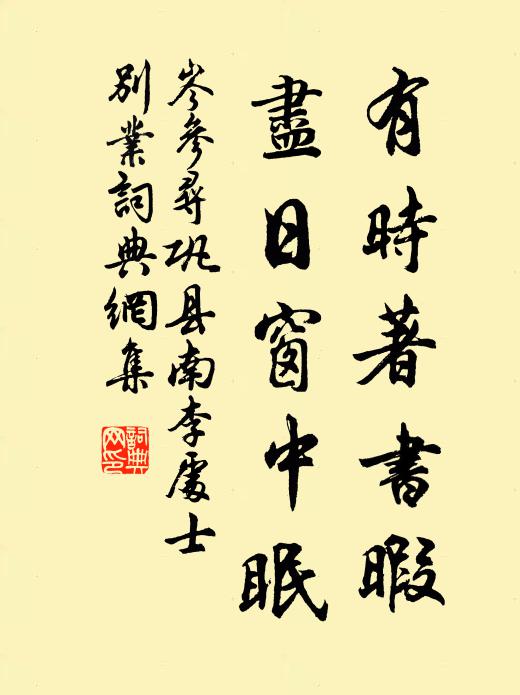 有時著書暇
盡日窗中眠
岑參尋巩县南李處士
別業詞典網集
詞典
网印